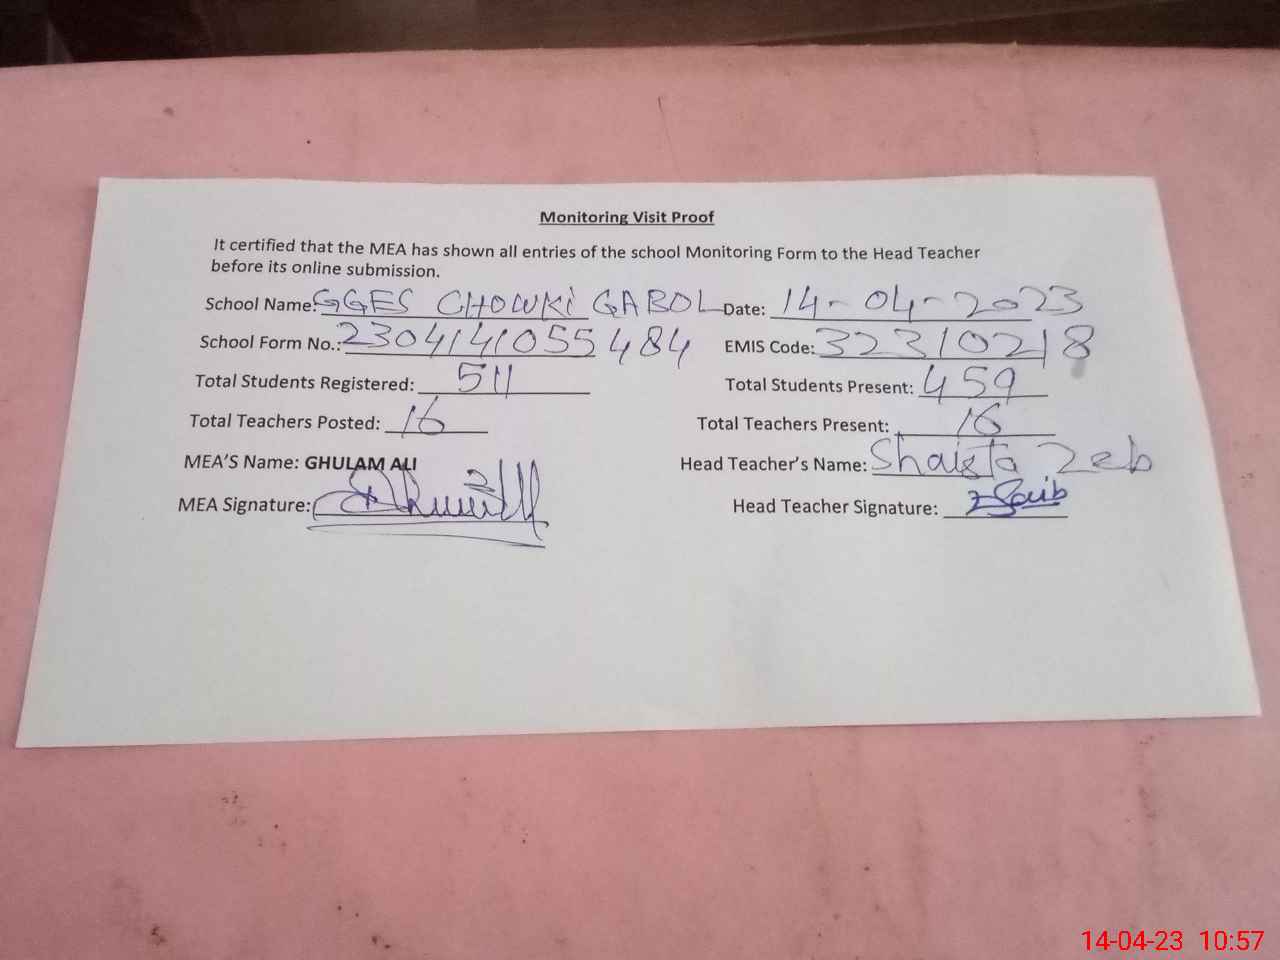 Monitoring Visit Proof
It certified that the MEA has shown all entries of the school Monitoring Form to the Head Teacher
before its online submission.
School Name: GGES CHOWKI GABOL Date: 14-04-2023
School Form No.: 2304141055484 EMIS Code: 32310218
Total Students Registered: 511 Total Students Present: 459
Total Teachers Posted: 16 Total Teachers Present: 16
MEA'S Name: GHULAM ALI Head Teacher's Name: Shaista Zeb
MEA Signature: Head Teacher Signature:
14-04-23 10:57